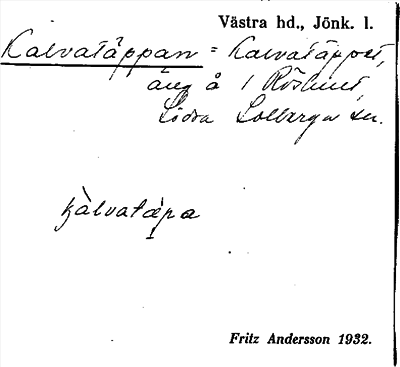 Västra hd., Jönk. l.
Kalvatäppan = Kalvatäppet,
äng å 1 Röshult,
Södra Solberga sn.
kàlvatæpa
Fritz Andersson 1932.